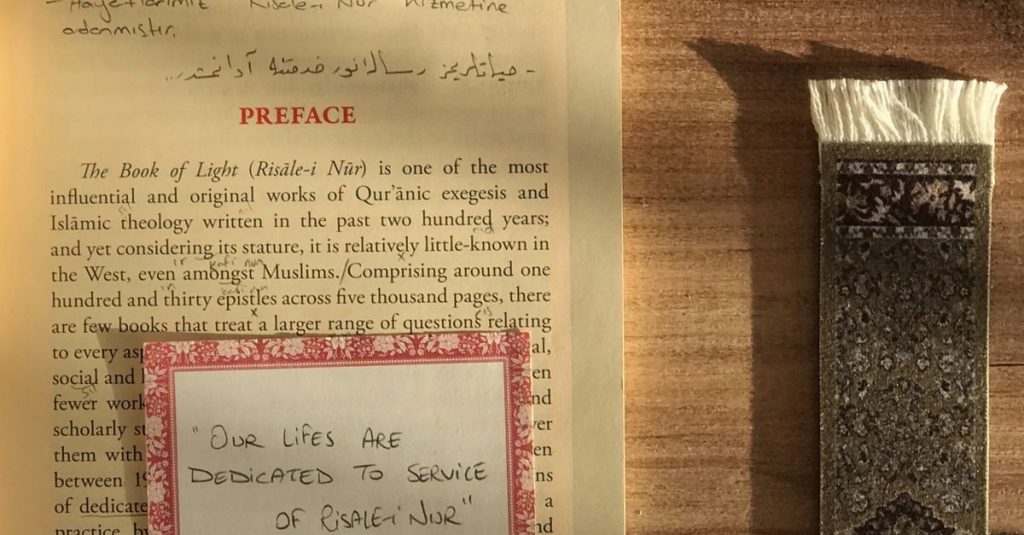 - Hayatlarımız Risale-i Nur hizmetine
adanmıştır.
- حیاتلریمز رسالۀ نور خدمتنه آدانمشدر...
PREFACE
The Book of Light (Risāle-i Nūr) is one of the most
influential and original works of Qur’ānic exegesis and
Islāmic theology written in the past two hundred years;
and yet considering its stature, it is relatively little-known in
the West, even amongst Muslims. Comprising around one
hundred and thirty epistles across five thousand pages, there
are few books that treat a larger range of questions relating
to every asp al,
social and en
fewer work and
scholarly st ver
them with en
between 19 ns
of dedicate a
practice by nd
"OUR LIFES ARE
DEDICATED TO SERVICE
OF RISALE-I NUR"